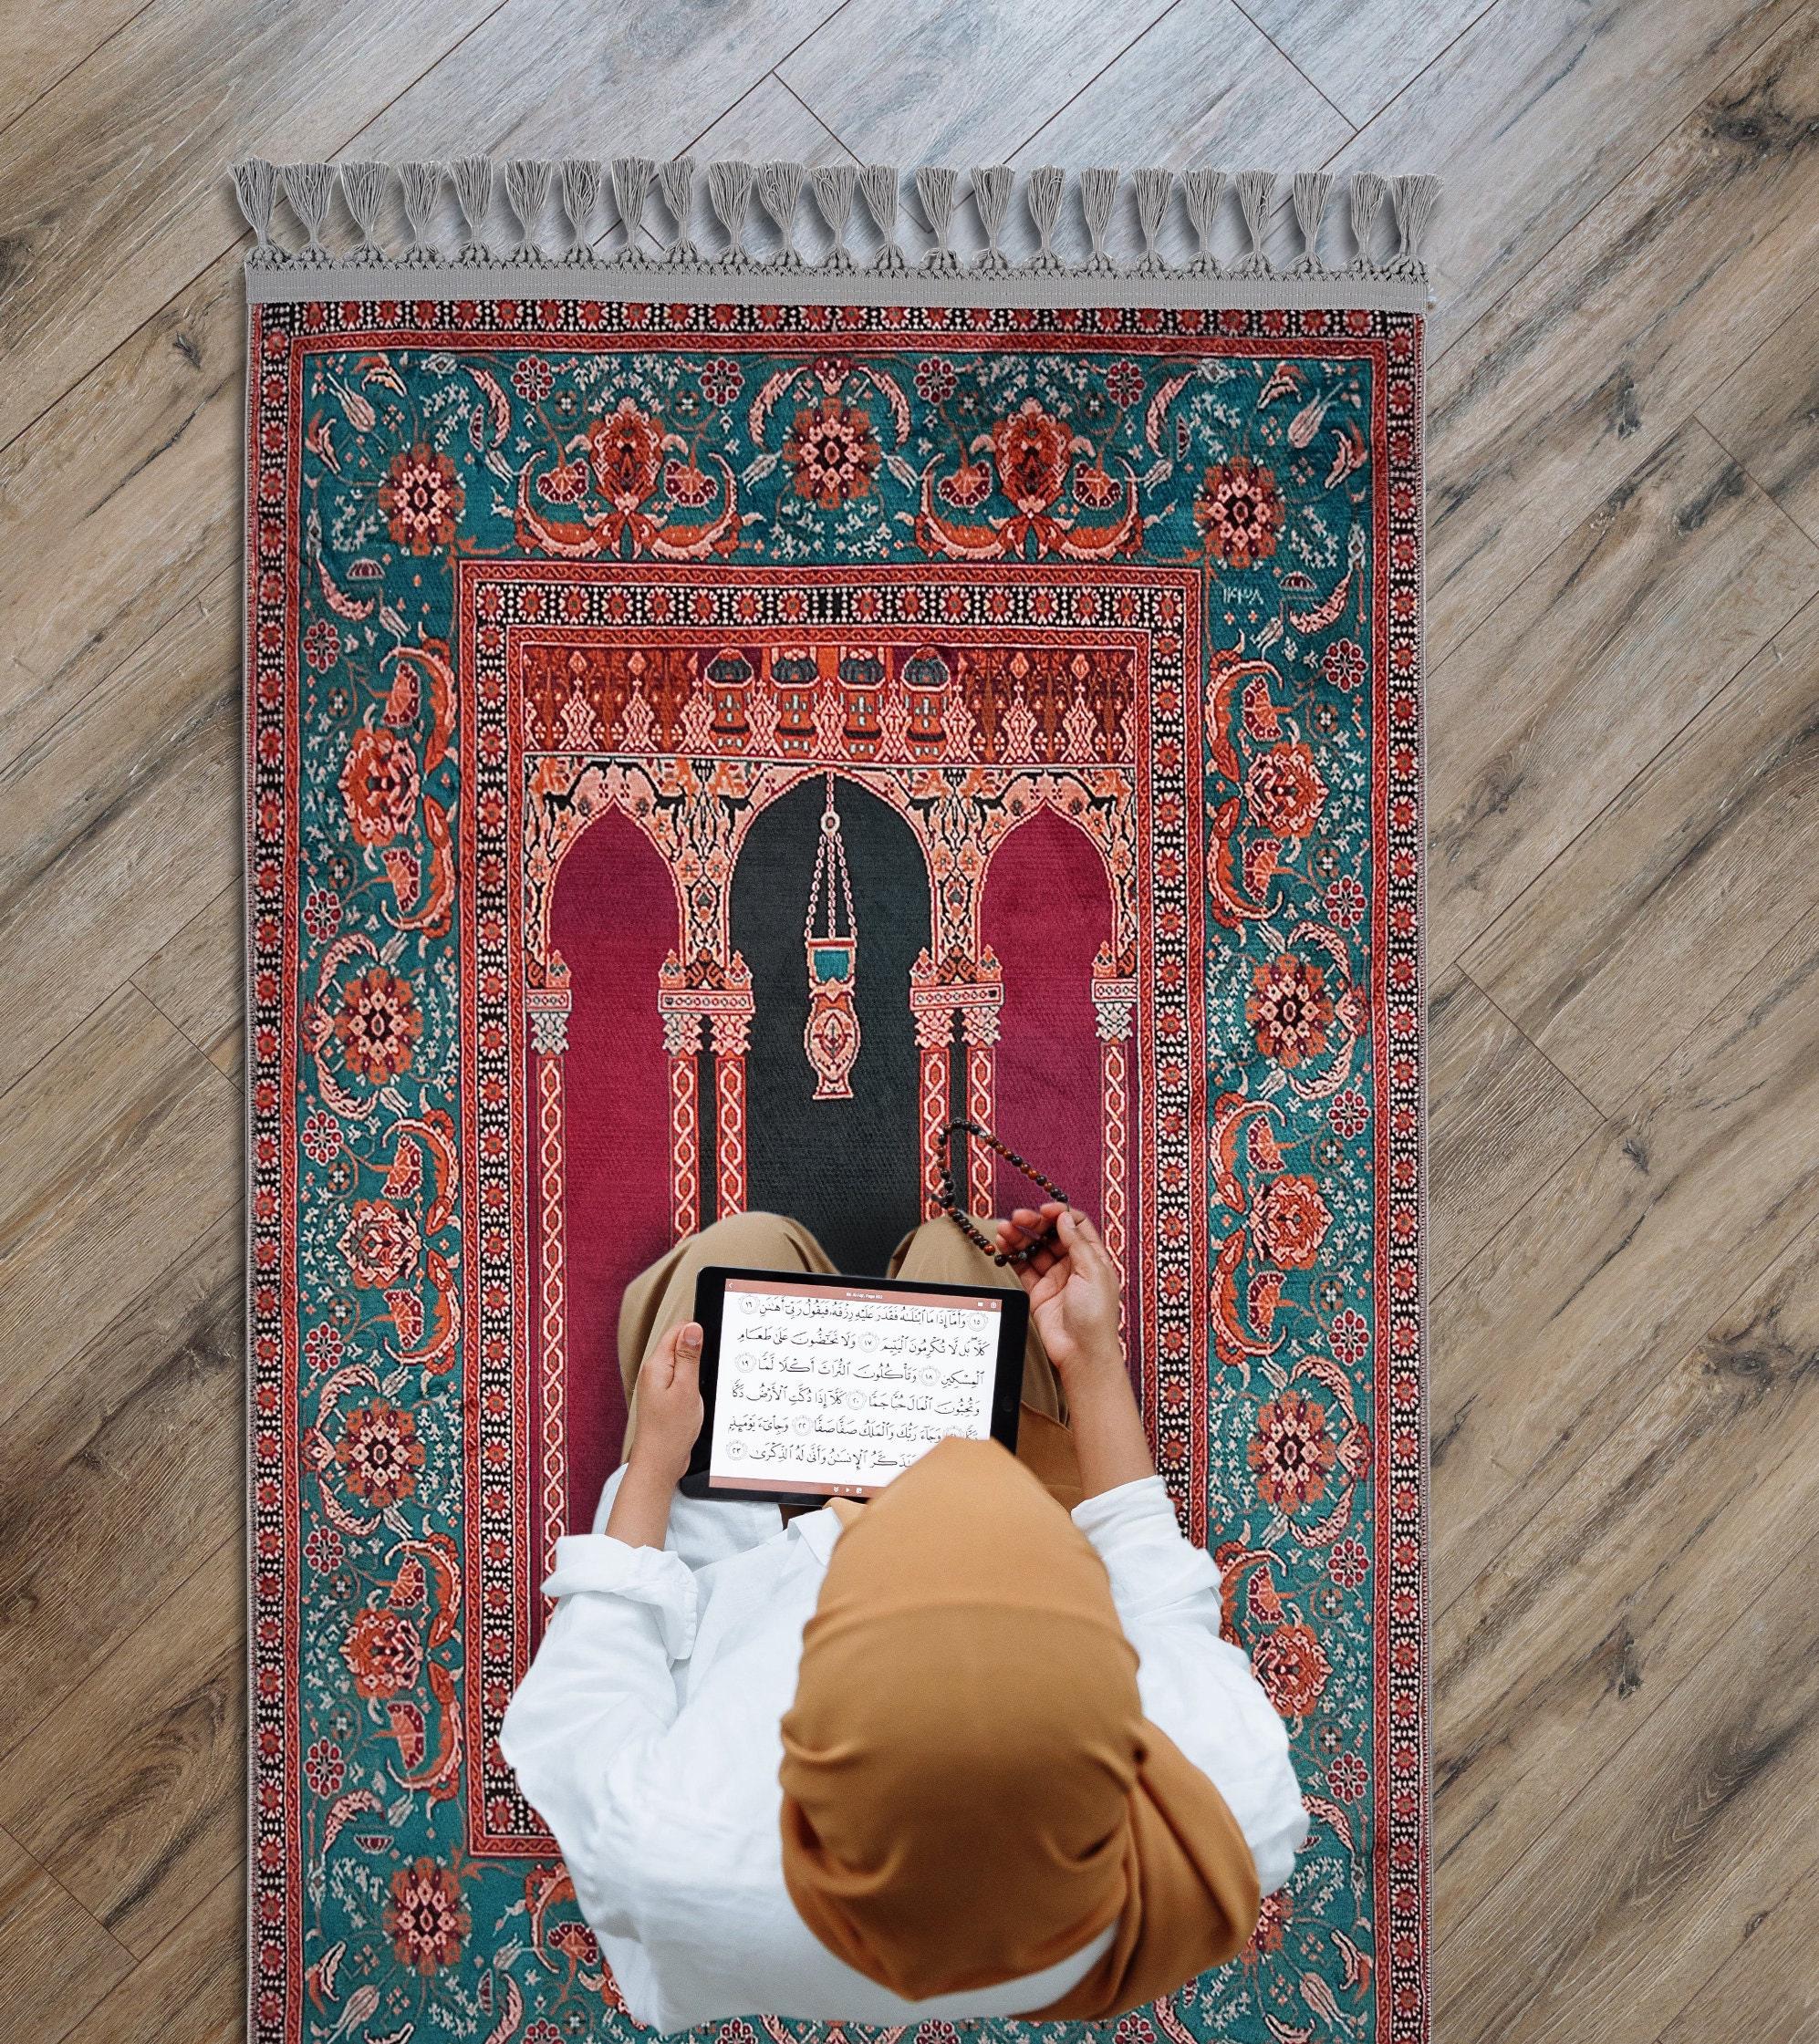 ١٤٣٨
وَأَمَّآ إِذَا مَا ٱبْتَلَىٰهُ فَقَدَرَ عَلَيْهِ رِزْقَهُۥ فَيَقُولُ رَبِّىٓ أَهَـٰنَنِ ١٦
كَلَّا ۖ بَل لَّا تُكْرِمُونَ ٱلْيَتِيمَ ١٧ وَلَا تَحَـٰٓضُّونَ عَلَىٰ طَعَامِ
ٱلْمِسْكِينِ ١٨ وَتَأْكُلُونَ ٱلتُّرَاثَ أَكْلًا لَّمًّا ١٩
وَتُحِبُّونَ ٱلْمَالَ حُبًّا جَمًّا ٢٠ كَلَّآ إِذَا دُكَّتِ ٱلْأَرْضُ دَكًّا
دَكًّا وَجَآءَ رَبُّكَ وَٱلْمَلَكُ صَفًّا صَفًّا ٢٢ وَجِا۟ىٓءَ يَوْمَئِذٍۭ
يَتَذَكَّرُ ٱلْإِنسَـٰنُ وَأَنَّىٰ لَهُ ٱلذِّكْرَىٰ ٢٣